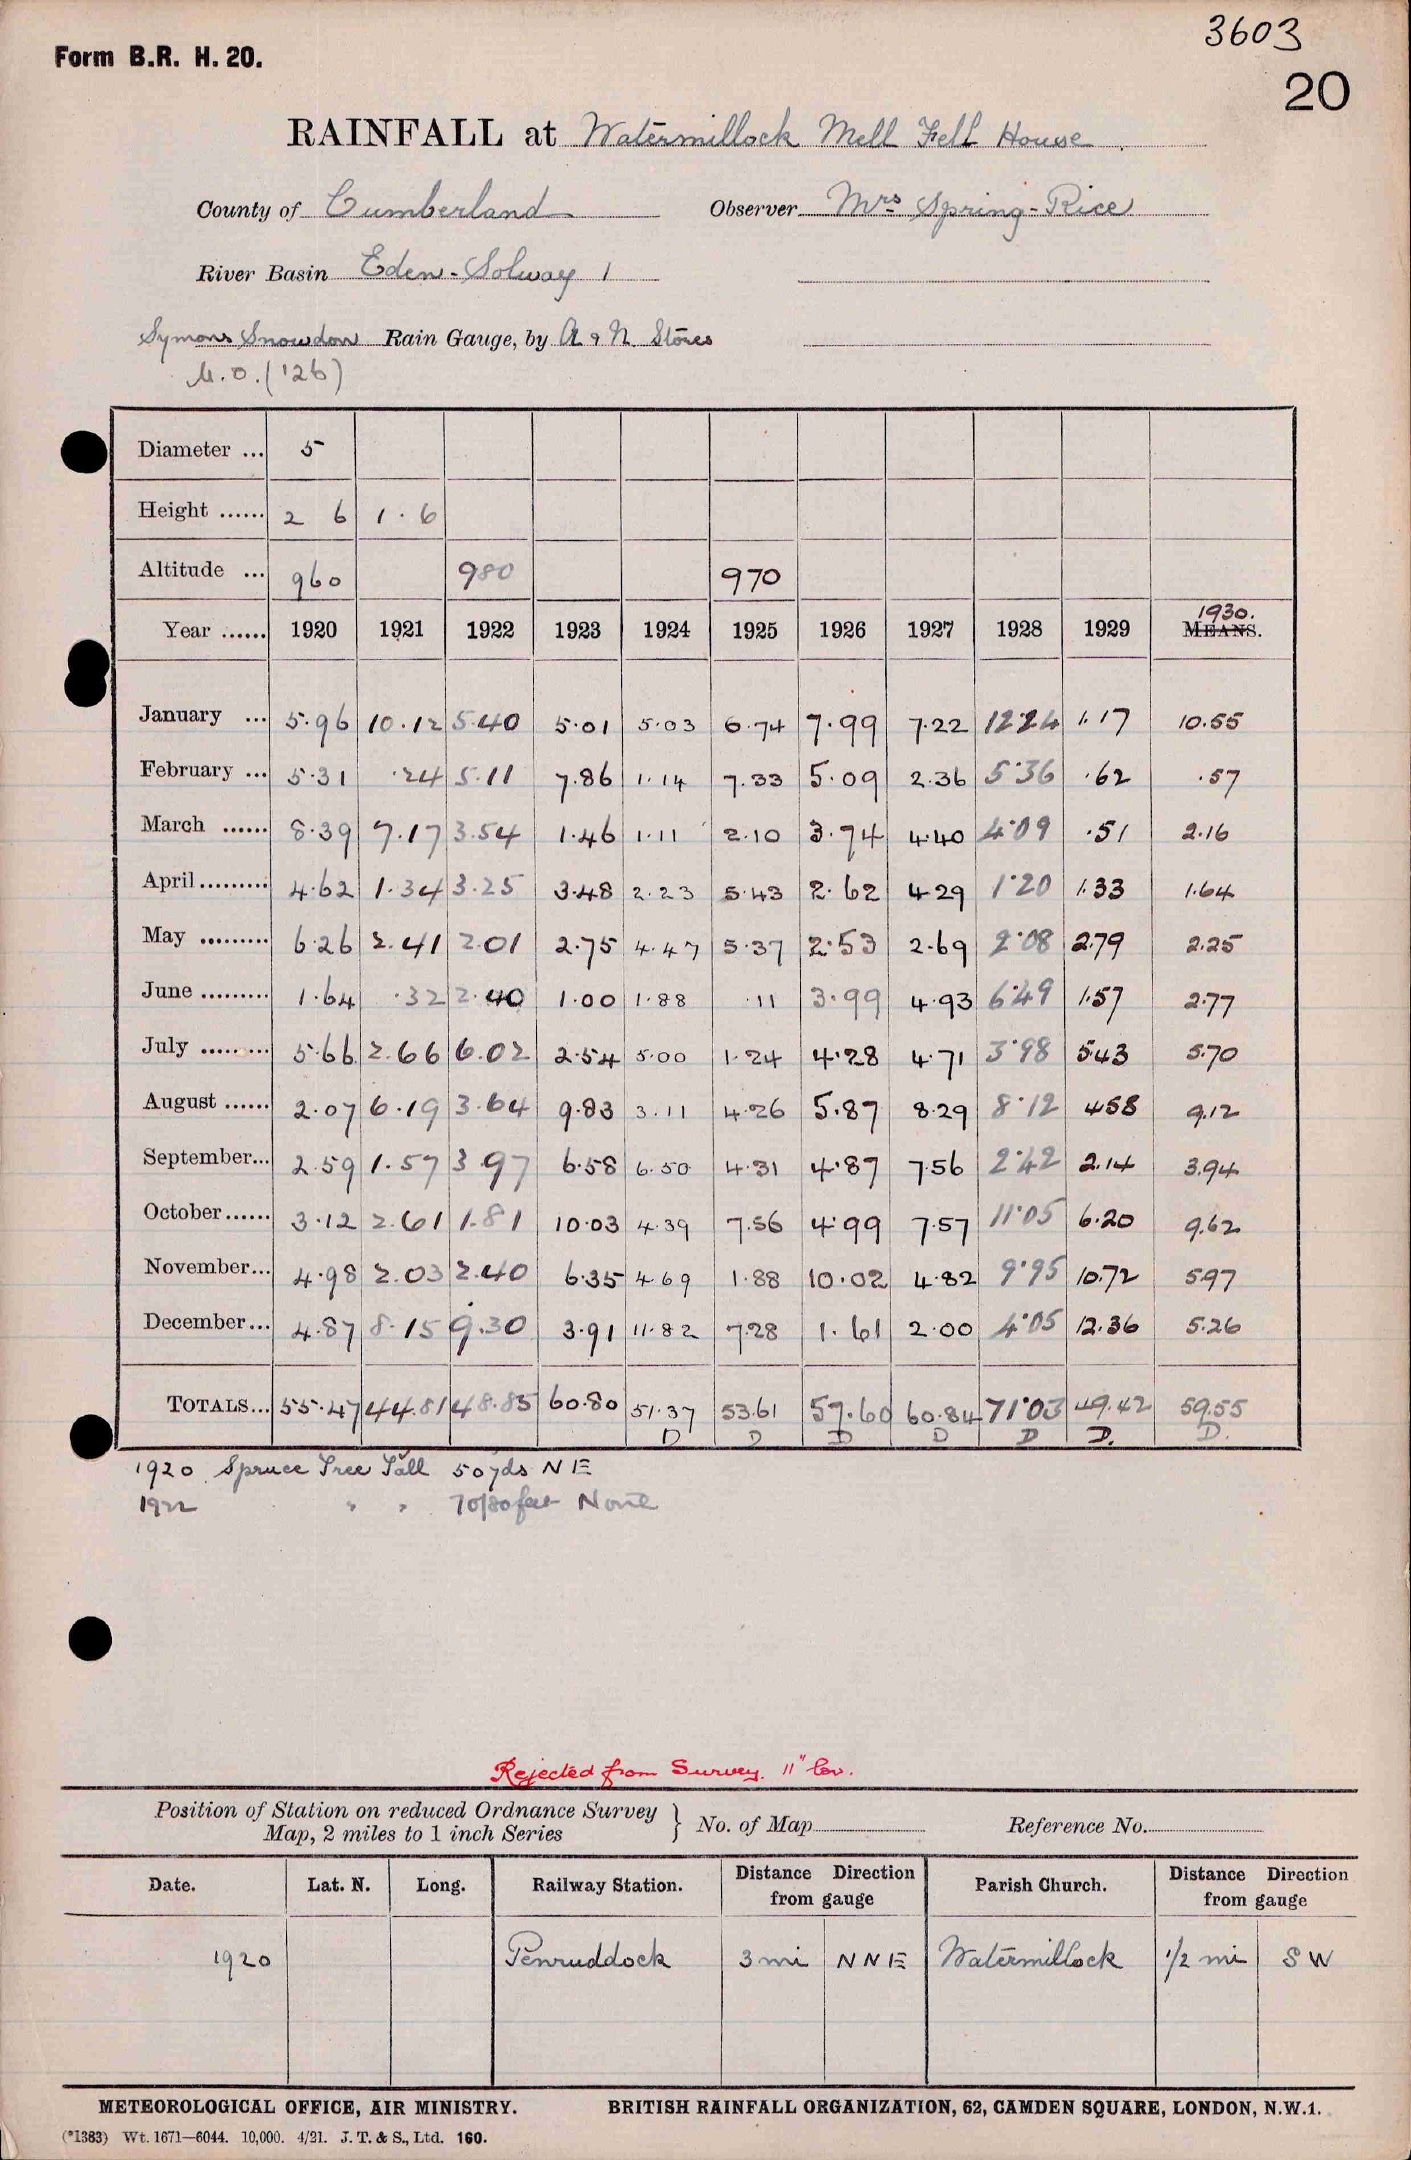 3603
Form B.R. H. 20.
20
RAINFALL at Watermillock Mell Fell House
County of Cumberland Observer Mrs Spring-Rice
River Basin Eden-Solway 1
Symons Snowdon Rain Gauge, by A & N. Stores
M.O. (126)
Diameter ... 5
Height ...... 2 6 1.6
Altitude ... 960 980 970
Year ...... 1920 1921 1922 1923 1924 1925 1926 1927 1928 1929 1930. MEANS.
January ... 5.96 10.12 5.40 5.01 5.03 6.74 7.99 7.22 12.24 1.17 10.55
February ... 5.31 .24 5.11 7.86 1.14 7.33 5.09 2.36 5.36 .62 .57
March ...... 8.39 7.17 3.54 1.46 1.11 2.10 3.74 4.40 4.09 .51 2.16
April ......... 4.62 1.34 3.25 3.48 2.23 5.43 2.62 4.29 1.20 1.33 1.64
May ......... 6.26 2.41 2.01 2.75 4.47 5.37 2.53 2.69 2.08 2.79 2.25
June ......... 1.64 .32 2.40 1.00 1.88 .11 3.99 4.93 6.49 1.57 2.77
July ......... 5.66 2.66 6.02 2.54 5.00 1.24 4.28 4.71 3.98 5.43 5.70
August ...... 2.07 6.19 3.64 9.83 3.11 4.26 5.87 8.29 8.12 4.58 9.12
September... 2.59 1.57 3.97 6.58 6.50 4.31 4.87 7.56 2.42 2.14 3.94
October ...... 3.12 2.61 1.81 10.03 4.39 7.56 4.99 7.57 11.05 6.20 9.62
November... 4.98 2.03 2.40 6.35 4.69 1.88 10.02 4.82 9.95 10.72 5.97
December... 4.87 8.15 9.30 3.91 11.82 7.28 1.61 2.00 4.05 12.36 5.26
TOTALS... 55.47 44.81 48.85 60.80 51.37 53.61 57.60 60.84 71.03 49.42 59.55
D D D D D D. D.
1920 Spruce Tree Tall 50 yds NE
1922 " " 70/80 feet None
Rejected from Survey. 11"
Position of Station on reduced Ordnance Survey Map, 2 miles to 1 inch Series } No. of Map Reference No.
Date. Lat. N. Long. Railway Station. Distance Direction from gauge Parish Church. Distance Direction from gauge
1920 Penruddock 3 mi NNE Watermillock 1/2 mi SW
METEOROLOGICAL OFFICE, AIR MINISTRY. BRITISH RAINFALL ORGANIZATION, 62, CAMDEN SQUARE, LONDON, N.W.1.
(*1383) Wt. 1671—6044. 10,000. 4/21. J. T. & S., Ltd. 160.